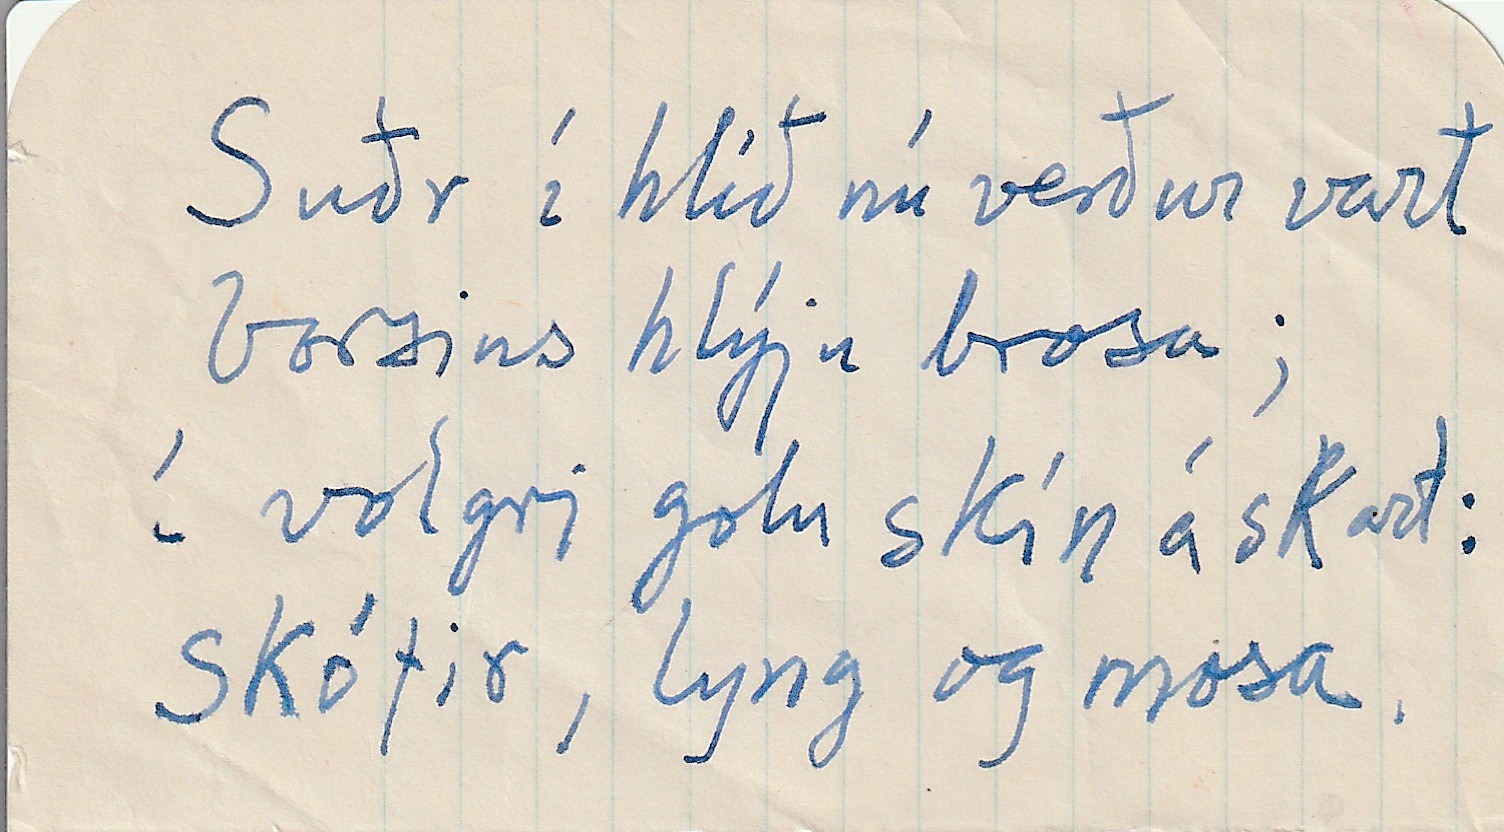 Suðr í hlíð nú verður vart
Vorsins hlýju brosa;
í volgri golu skín á skart:
skófir, lyng og mosa.